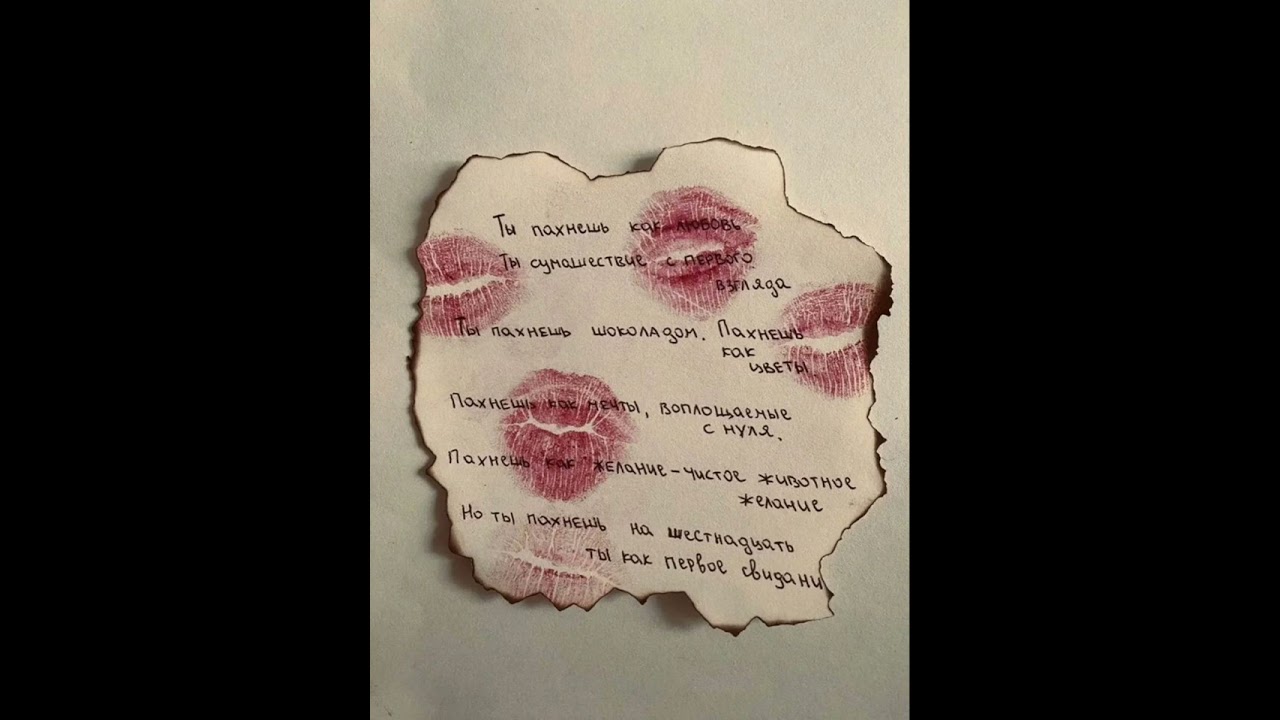 Ты пахнешь как любовь
Ты сумашествие с первого
взгляда
Ты пахнешь шоколадом. Пахнешь
как
цветы.
Пахнешь как мечты, воплощаемые
с нуля.
Пахнешь как желание – чистое животное
желание
Но ты пахнешь на шестнадцать
ты как первое свидани